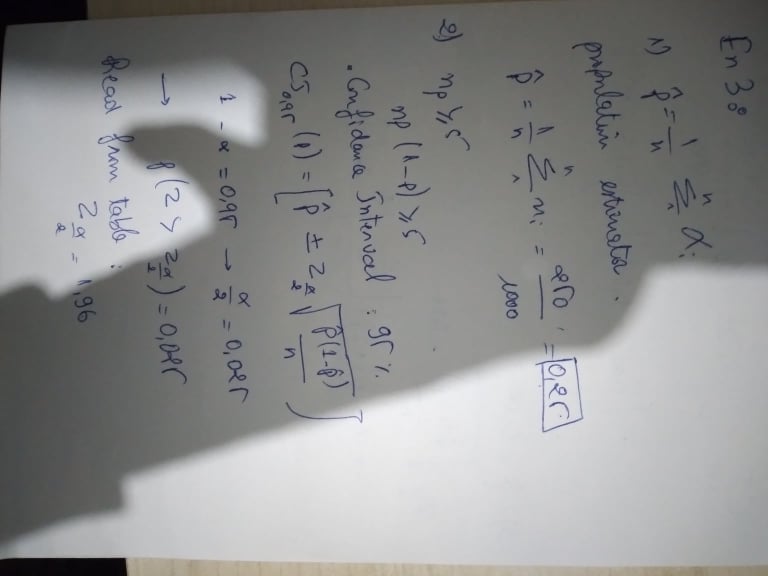 En 3:
1) p̂ = 1/n Σ xᵢ
population estimator.
p̂ = 1/n Σ xᵢ = 250/1000 = 0,25
2) np ≥ 5
np(1-p) ≥ 5
. Confidance Interval : 95 %
CI₀,₉₅(p) = [p̂ ± Z_{α/2} √(p̂(1-p̂)/n)]
1 - α = 0,95 → α/2 = 0,025
→ P(Z > Z_{α/2}) = 0,025
Read from table :
Z_{α/2} = 1,96